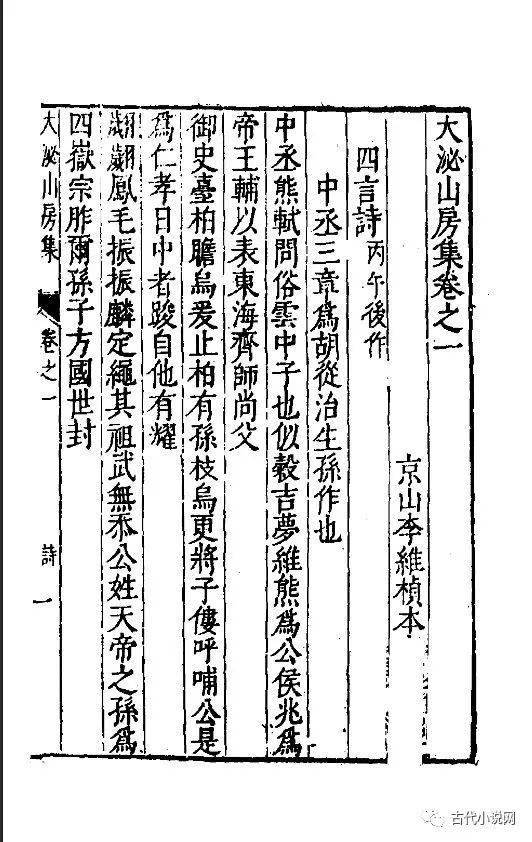 大泌山房集卷之一
京山李維楨本
四言詩丙午後作
中丞三章為胡從治生孫作也
中丞熊軾問俗雲中子也似穀吉夢維熊為公侯兆為
帝王輔以表東海齊師尚父
御史臺柏瞻烏爰止柏有孫枝烏更將子僂呼哺公是
為仁孝日中者踆自他有耀
翽翽鳳毛振振麟定繩其祖武無忝公姓天帝之孫為
四嶽宗胙爾孫子方國世封
大泌山房集 卷之一 詩 一
古代小说网